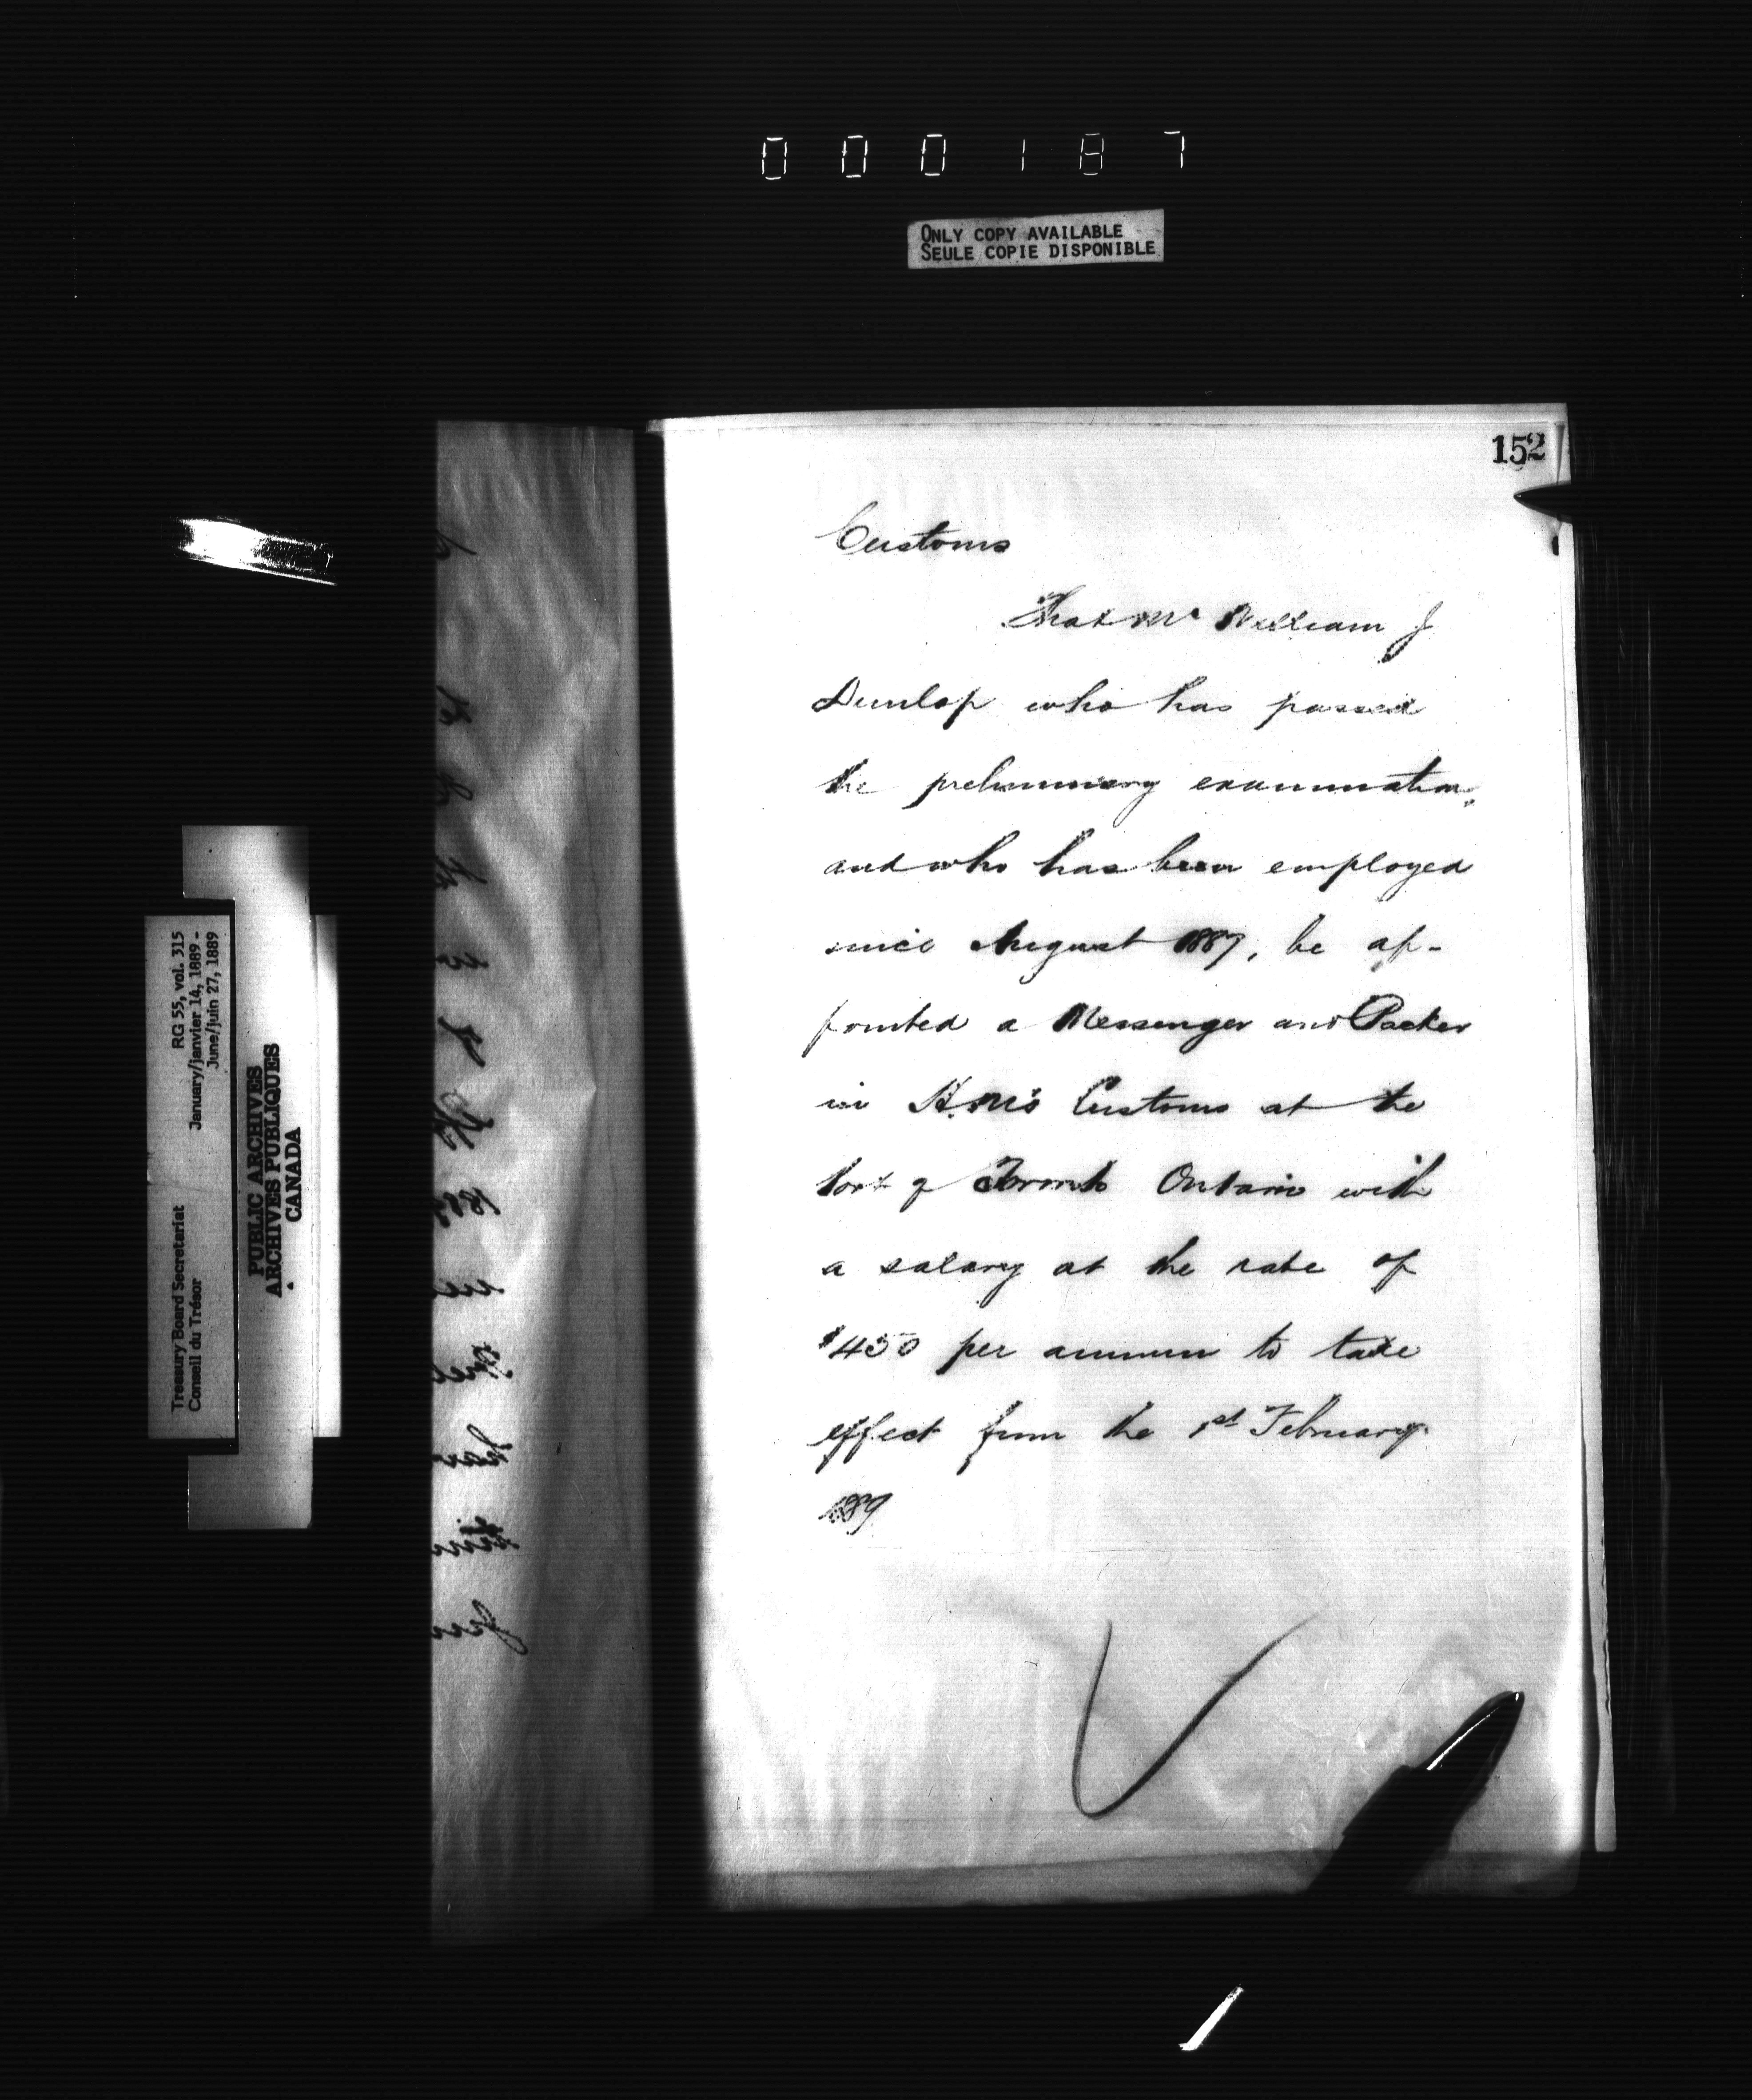 000187
ONLY COPY AVAILABLE
SEULE COPIE DISPONIBLE
152
Customs
That Mr William J
Dunlop who has passed
the preliminary examination,
and who has been employed
since August 1887, be ap-
pointed a Messenger and Packer
in H.M's Customs at the
Port of Toronto Ontario with
a salary at the rate of
$450 per annum to take
effect from the 1st February
1889
RG 55, vol. 315
January/janvier 14, 1889 -
June/juin 27, 1889
Treasury Board Secretariat
Conseil du Trésor
PUBLIC ARCHIVES
ARCHIVES PUBLIQUES
CANADA